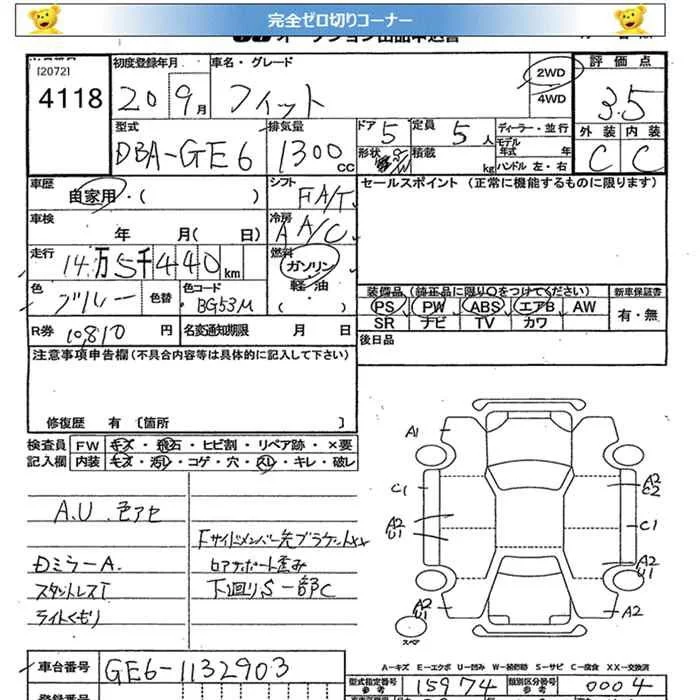 完全ゼロ切りコーナー
[2072]
4118
初度登録年月
20 9月
車名・グレード
フィット
2WD
4WD
評価点
3.5
外装 内装
C C
型式
DBA-GE6
排気量
1300cc
ドア 5
定員 5人
形状
積載 kg
ディーラー・並行
モデル年式 年
ハンドル 左・右
車歴
自家用・( )
シフト
FA/T
セールスポイント(正常に機能するものに限ります)
車検
年 月(日)
冷房
A A/C
走行
14万5千440km
燃料
ガソリン
軽・油
( )
色
ブルー
色替
色コード
BG53M
装備品(純正品に限り○をつけてください)
PS PW ABS エアB AW
SR ナビ TV カワ
新車保証書
有・無
R券 10,810円
名変通知期限 月 日
後日品
注意事項申告欄(不具合内容等は具体的に記入して下さい)
修復歴 有〔箇所 〕
検査員
記入欄
FW キズ・飛石・ヒビ割・リペア跡・×要
内装 キズ・汚レ・コゲ・穴・スレ・キレ・破レ
A.U.色アセ
Dミラー A.
スタントレスT
ライトくもり
Fサイドメンバー先ブラケットxx
ロアサポート歪み
下廻りS一部C
A1
C1
A2
U1
A2
U1
スペア
A2
C2
C1
A2
U1
A2
A-キズ E-エクボ U-凹み W-補修跡 S-サビ C-腐食 XX-交換済
車台番号
GE6-1132903
型式指定番号
参考
15974
類別区分番号
参考
0004
登録番号